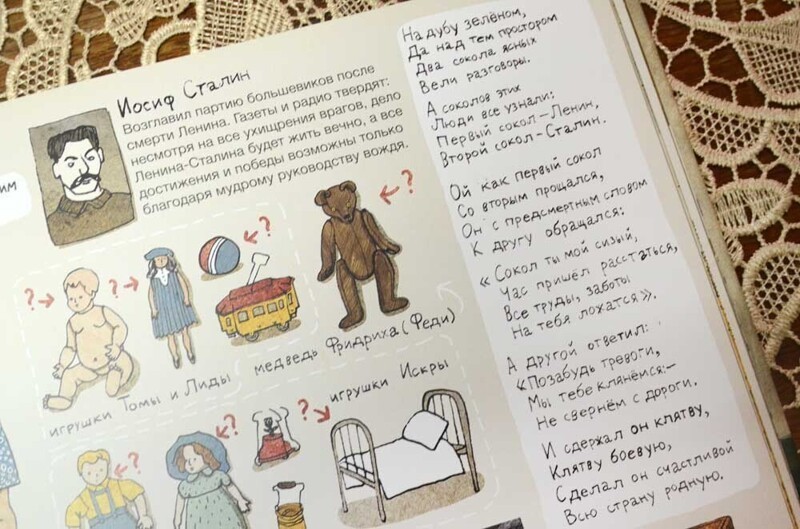 Иосиф Сталин
Возглавил партию большевиков после
смерти Ленина. Газеты и радио твердят:
несмотря на все ухищрения врагов, дело
Ленина-Сталина будет жить вечно, а все
достижения и победы возможны только
благодаря мудрому руководству вождя.
им
?
?
?
?
игрушки Томы и Лиды
медведь Фридриха (Феди)
игрушки Искры
?
?
?
На дубу зелёном,
Да над тем простором
Два сокола ясных
Вели разговоры.
А соколов этих
Люди все узнали:
Первый сокол – Ленин,
Второй сокол – Сталин.
Ой как первый сокол
Со вторым прощался,
Он с предсмертным словом
К другу обращался:
« Сокол ты мой сизый,
Час пришёл расстаться,
Все труды, заботы
На тебя ложатся».
А другой ответил:
«Позабудь тревоги,
Мы тебе клянёмся:–
Не свернём с дороги.
И сдержал он клятву,
Клятву боевую,
Сделал он счастливой
Всю страну родную.